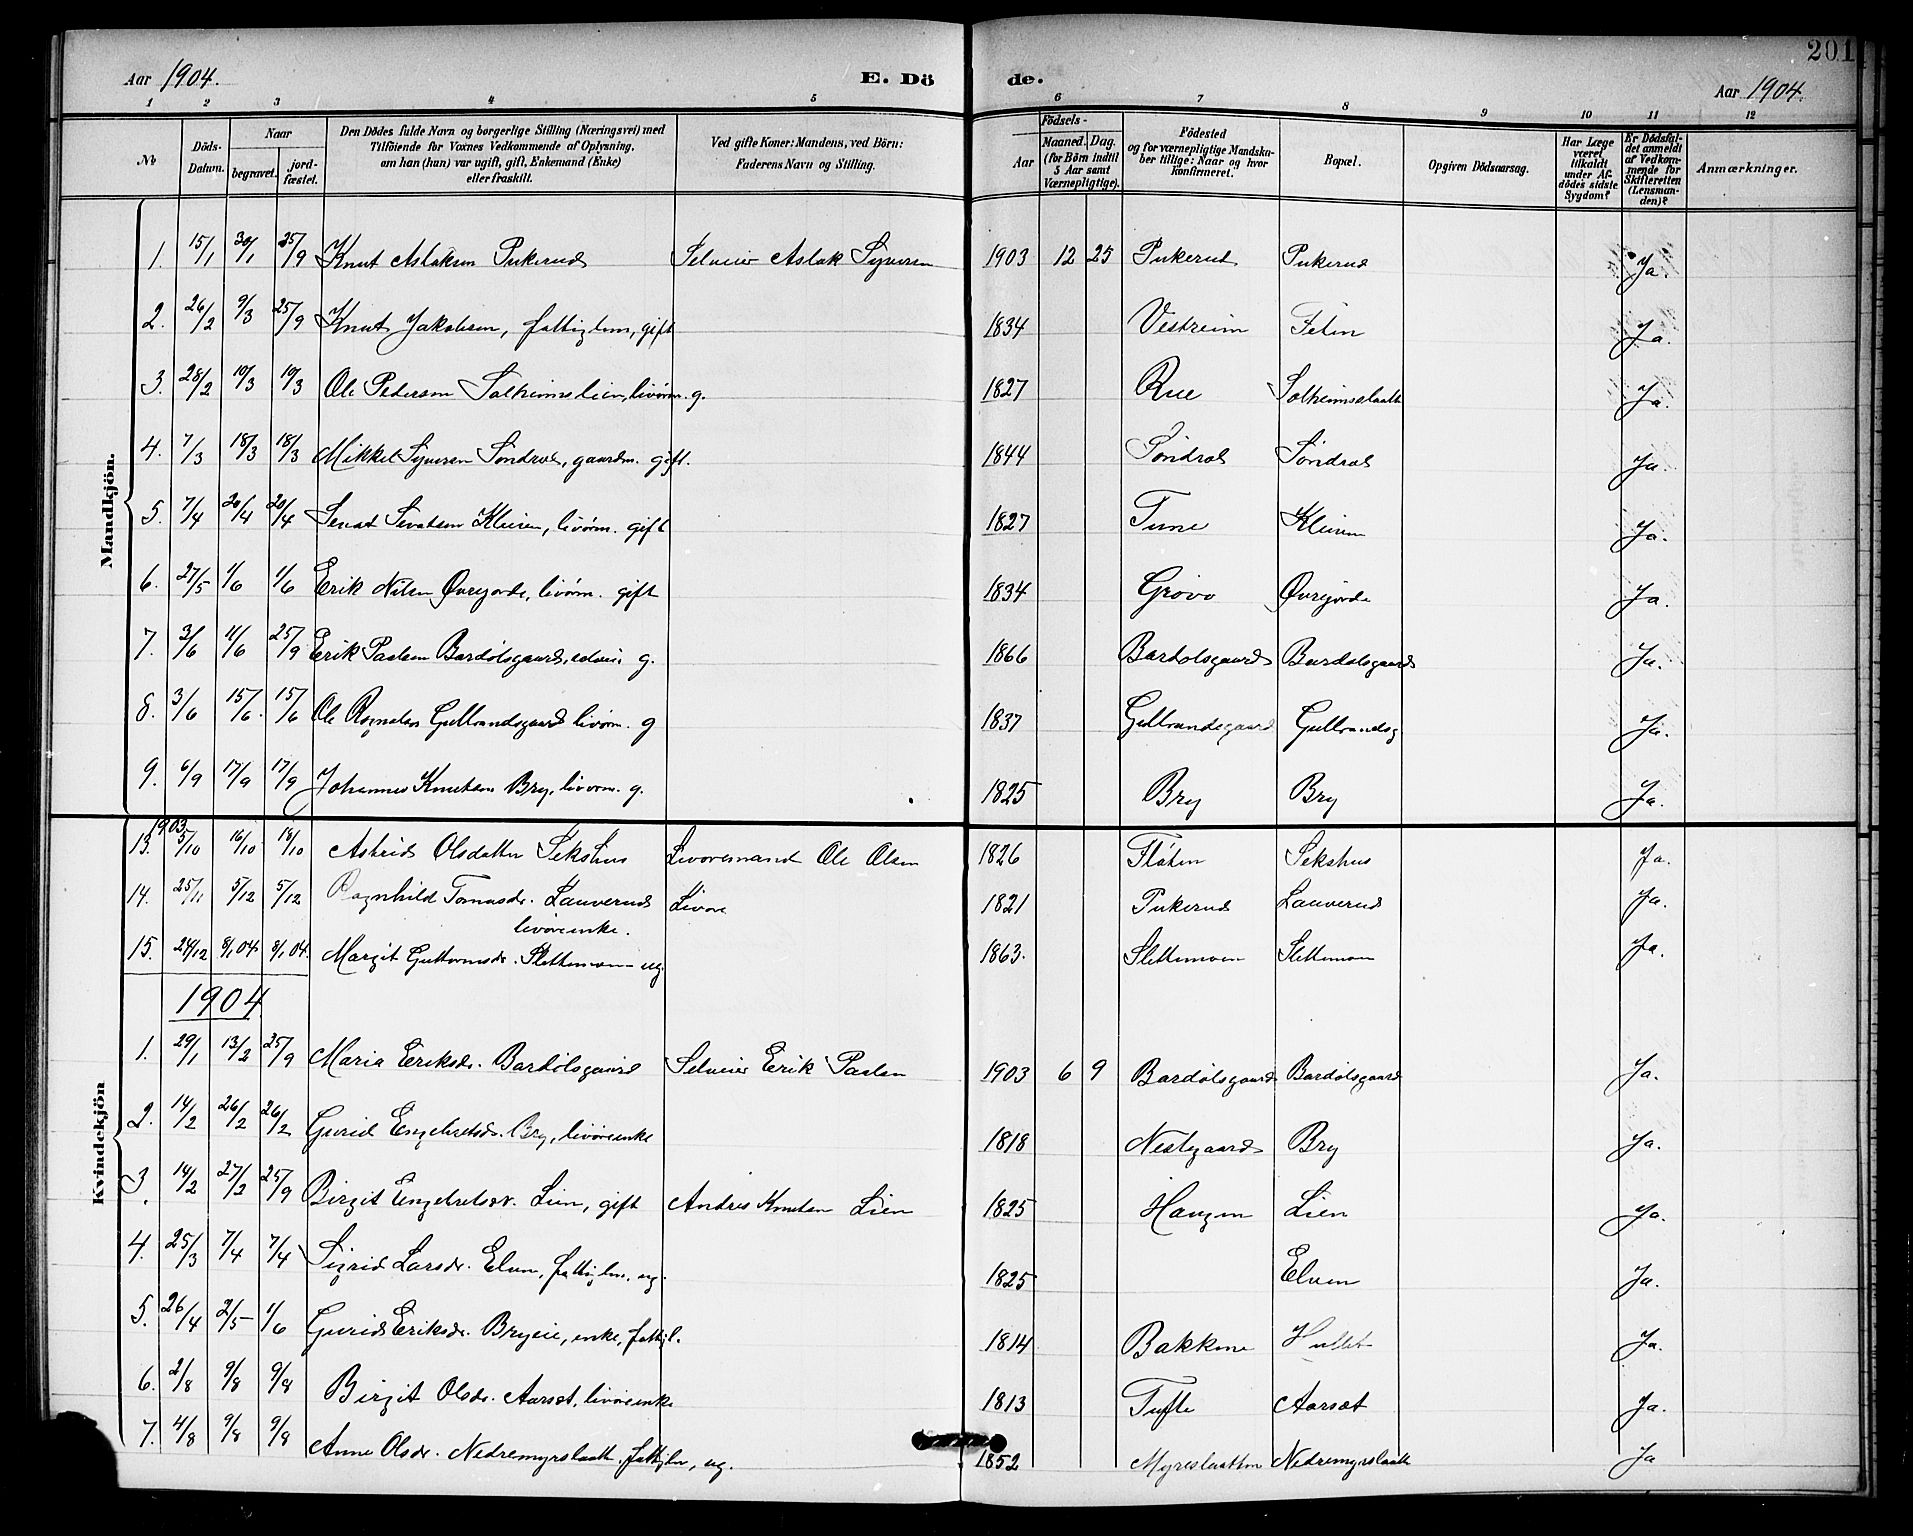 201
Aar 1904. E. Dö de. Aar 1904.
1 2 3 4 5 6 7 8 9 10 11 12
No Döds-Datum. Naar begravet. jord-fæstet. Den Dödes fulde Navn og borgerlige Stilling (Næringsvei) med Tilföiende for Voxnes Vedkommende af Oplysning, om han (hun) var ugift, gift, Enkemand (Enke) eller fraskilt. Ved gifte Koner: Mandens, ved Börn: Faderens Navn og Stilling. Födsels- Aar Maaned. Dag. (for Börn indtil 5 Aar samt Værnepligtige). Födested og for værnepligtige Mandskaber tillige: Naar og hvor konfirmeret. Bopæl. Opgiven Dödsaarsag. Har Læge været tilkaldt under Afdödes sidste Sygdom? Er Dödsfaldet anmeldt af Vedkommende for Skifteretten (Lensmanden)? Anmærkninger.
Mandkjön.
1. 15/1 30/1 25/9 Knut Aslaksen Pukerud Selveier Aslak Syversen 1903 12 25 Pukerud Pukerud Ja.
2. 26/2 9/3 25/9 Knut Jakobsen, fattiglem, gift 1834 Vestreim Feten Ja.
3. 28/2 19/3 19/3 Ole Pedersen Solheimslien, livörm. g. 1827 Rue Solheimsslaatt Ja.
4. 7/3 18/3 18/3 Mikkel Syversen Söndrol, gaardm. gift. 1844 Söndrol Söndrol Ja
5. 7/4 20/4 20/4 Sevat Sevatsen Kleiven, livörm. gift 1827 Tune Kleiven Ja.
6. 27/5 1/6 1/6 Erik Nilsen Øvrejorde, livörm. gift 1834 Grovo Øvrejorde Ja.
7. 3/6 11/6 25/9 Erik Paalsen Bardölsgaard, selvei. g. 1866 Bardolsgaard Bardolsgaard Ja.
8. 3/6 15/6. 15/6 Ole Rognalsen Gulbrandsgaard livörm. g 1837 Gulbrandsgaard Gulbrandsg Ja.
9. 6/9 17/9 17/9 Johannes Knutsen Bry, livörm. g. 1825 Bry Bry Ja.
Kvindekjön
1903
13. 5/10 16/10 18/10 Astrid Olsdatter Sekshus Livöremand Ole Olsen 1826 Flöten Sekshus Ja.
14. 25/11 5/12 5/12 Ragnhild Tomasdr. Lauverud Livöre 1821 Pukerud Lauverud Ja.
livöreenke.
15. 24/12 8/1 04 8/1 04. Margit Guttormsdr. Slettemoen ug. 1863. Slettemoen Slettemoen Ja.
1904
1. 29/1 13/2 25/9 Maria Eriksdr. Bardölsgaard Selveier Erik Paalsen 1903 6 9 Bardölsgaard Bardölsgaard Ja.
2. 14/2 26/2 26/2 Gurid Engebretsdr. Bry, livöreenke 1818 Nestegaard Bry Ja.
3. 14/2 27/2 25/9 Birgit Engebretsdr. Lien, gift Andres Knutsen Lien 1825 Haugen Lien Ja.
4. 25/3 7/4 7/4 Sigrid Larsdr. Elven, fattiglm. ug. 1825 Elven Ja.
5. 26/4 2/5 1/6 Gurid Eriksdr. Bryeie, enke, fattigl. 1814 Bakkene Ja.
6. 2/8 9/8 9/8 Birgit Olsdr. Aarsæt, livöreenke 1813 Tufte Aarsæt Ja.
7. 4/8 9/8 9/8 Anne Olsdr. Nedremyrslaatt. fattiglm, ug. 1852 Myreslaatten Nedremyrslaatt Ja